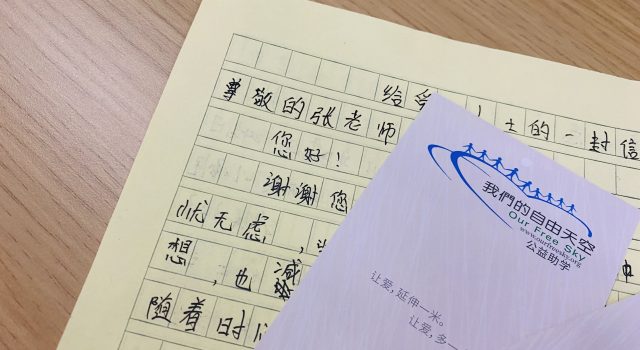 给
士的一封信
尊敬的张老师
您好！
谢谢您
忧无虑，
想，也减
随着时
我們的自由天空
Our Free Sky
www.ourfreesky.org
公益助学
让爱，延伸一米。
让爱，多一